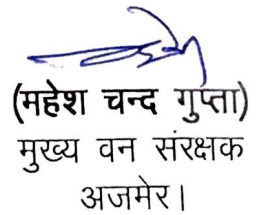 (महेश चन्द गुप्ता)
मुख्य वन संरक्षक
अजमेर।